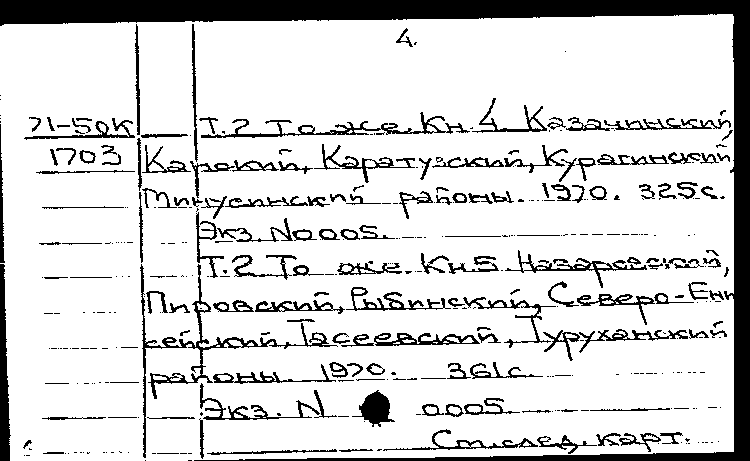 4.
71-50К Т.2 То же. Кн. 4. Казачинский,
1703 Канский, Каратузский, Курагинский,
Минусинский районы. 1970. 325с.
Экз. N0005.
Т.2 То же. Кн.5. Назаровский,
Пировский, Рыбинский, Северо-Ени
сейский, Тасеевский, Туруханский
районы. 1970. 361с.
Экз. N 0005.
См.след. карт.